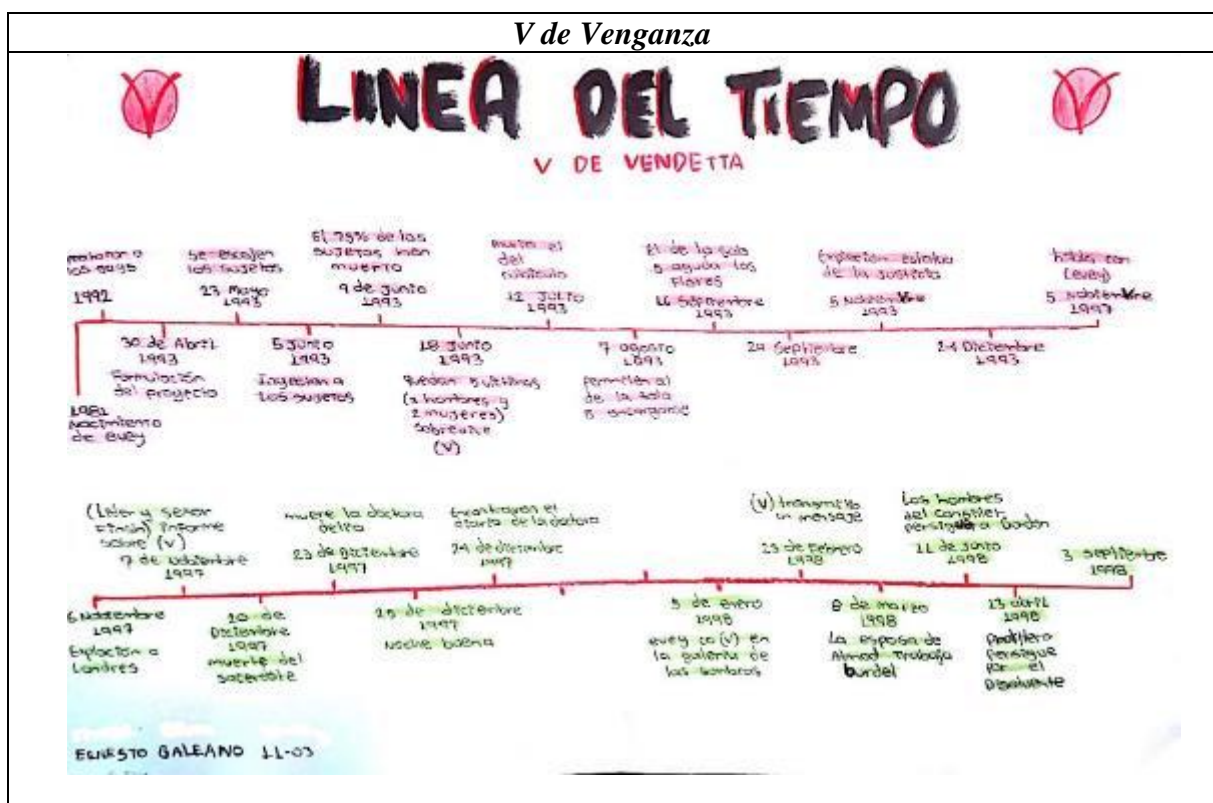 V de Venganza
LINEA DEL TIEMPO
V DE VENDETTA
1992
se escojen
los sujetos
23 Mayo
1993
El 75% de los
sujetos han
muerto
9 de junio
1993
del
12 JULIO
1993
El de la sala
5 ayuda los
Flores
16 Septiembre
1993
Explocion estatua
de la justicia
5 Noviembre
1993
(evey)
5 Noviembre
1997
30 de Abril
1993
Formulación
del proyecto
5 junio
1993
Inyectan a
los sujetos
18 junio
1993
Quedan 5 victimas
(2 hombres y
2 mujeres)
sobrevive
(V)
7 agosto
1993
permiten al
de la sala
5 encargarse
24 Septiembre
1993
24 Diciembre
1993
1981
Nacimiento
de evey
Informe
sobre (V)
7 de Noviembre
1997
muere la doctora
23 de Diciembre
1997
Encontraron el
diario de la doctora
24 de diciembre
1997
(V) transmitio
un mensaje
23 de Febrero
1998
Los hombres
del
persiguen a Gordon
11 de junio
1998
3 septiembre
1998
6 Noviembre
1997
Explocion a
Londres
20 de
Diciembre
1997
muerte del
sacerdote
25 de diciembre
1997
Noche buena
5 de enero
1998
evey co (v) en
la galeria de
las sombras
8 de marzo
1998
La esposa de
Almod trabaja
burdel
13 abril
1998
persigue
por el
ERNESTO GALEANO 11-03